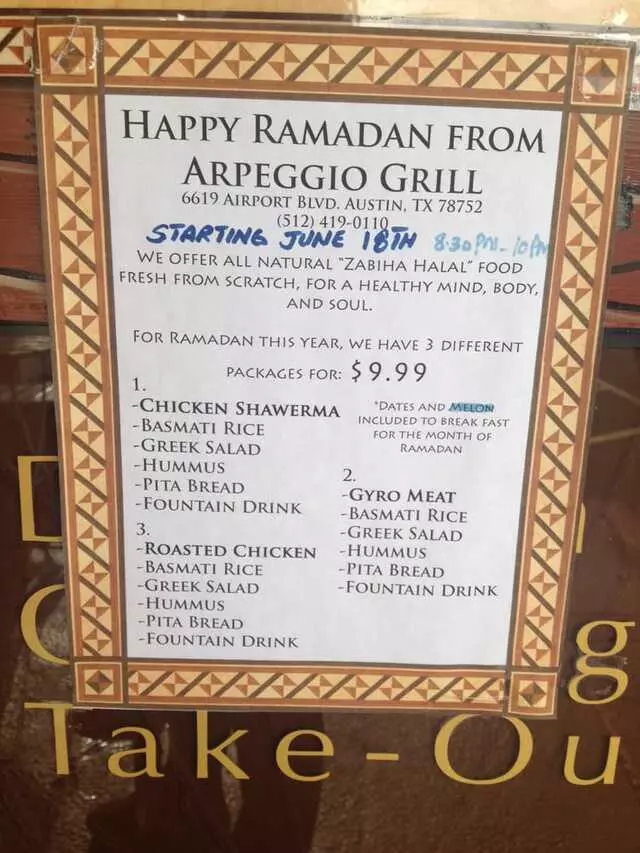 HAPPY RAMADAN FROM
ARPEGGIO GRILL
6619 AIRPORT BLVD. AUSTIN, TX 78752
(512) 419-0110
STARTING JUNE 18TH 8:30 PM - 10PM
WE OFFER ALL NATURAL "ZABIHA HALAL" FOOD
FRESH FROM SCRATCH, FOR A HEALTHY MIND, BODY,
AND SOUL.
FOR RAMADAN THIS YEAR, WE HAVE 3 DIFFERENT
PACKAGES FOR: $9.99
1.
-CHICKEN SHAWERMA
-BASMATI RICE
-GREEK SALAD
-HUMMUS
-PITA BREAD
-FOUNTAIN DRINK
*DATES AND MELON
INCLUDED TO BREAK FAST
FOR THE MONTH OF
RAMADAN
2.
-GYRO MEAT
-BASMATI RICE
-GREEK SALAD
-HUMMUS
-PITA BREAD
-FOUNTAIN DRINK
3.
-ROASTED CHICKEN
-BASMATI RICE
-GREEK SALAD
-HUMMUS
-PITA BREAD
-FOUNTAIN DRINK
Take-Ou